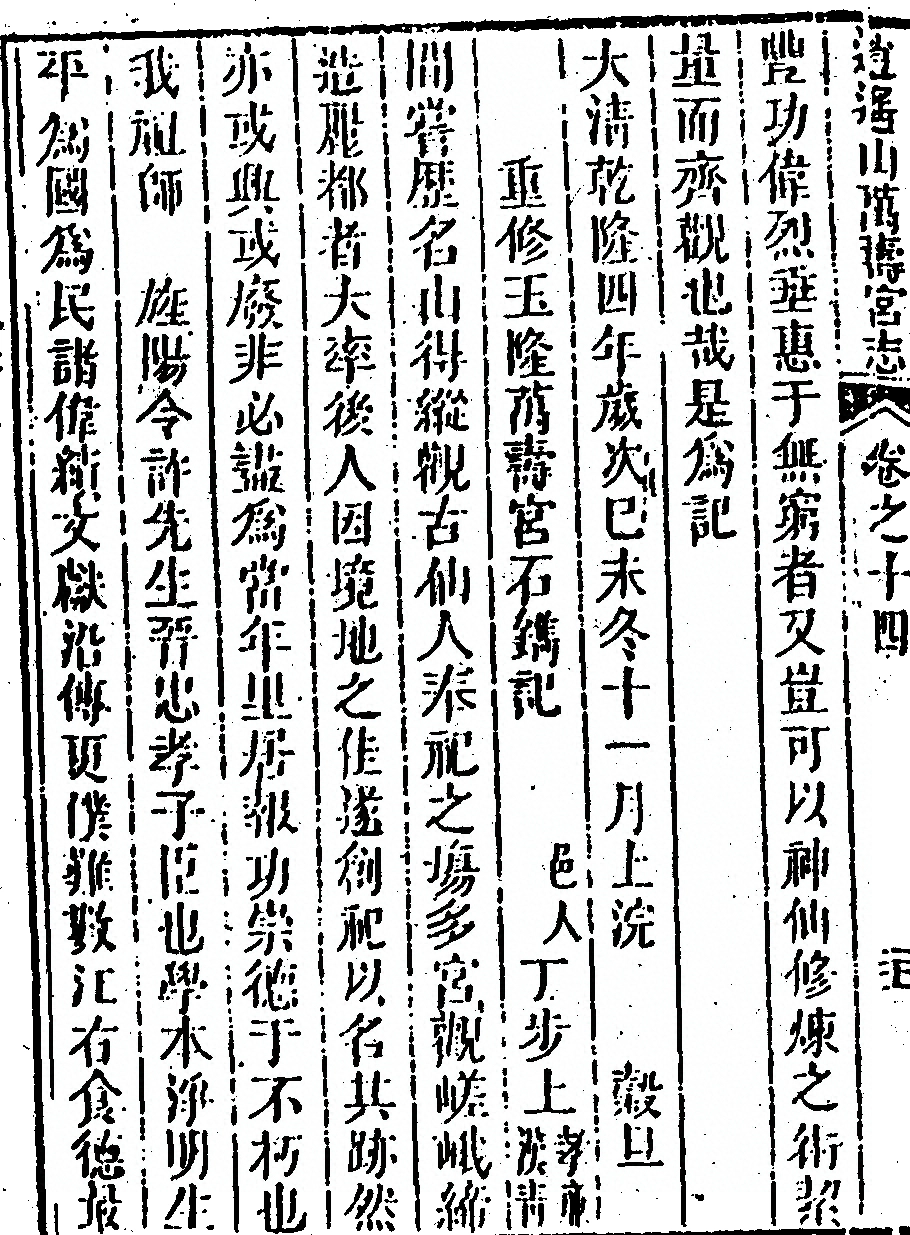 逍遙山萬壽宮志 卷之十四
豐功偉烈垂惠于無窮者又豈可以神仙修煉之術絜
量而齊觀也哉是爲記
大清乾隆四年歲次已未冬十一月上浣 穀旦
重修玉隆萬壽宮石鐫記 邑人丁步上
間嘗歷名山得縱觀古仙人奉祀之塲多宮觀嵯峨締
造雕都者大率後人因境地之佳遂創祀以名其跡然
亦或興或廢非必盡爲當年里居報功崇德于不朽也
我祖師 旌陽令許先生晉忠孝子臣也學本淨明生
平爲國爲民諸偉績文獻沿傳更僕難數江右食德最